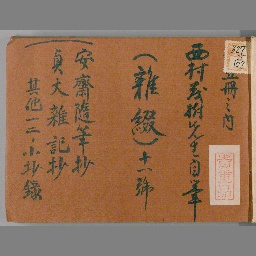 五冊之内
西村茂樹先生自筆
(雜綴)十八號
安齋隨筆抄
貞丈雜記抄
其他一二小抄錄